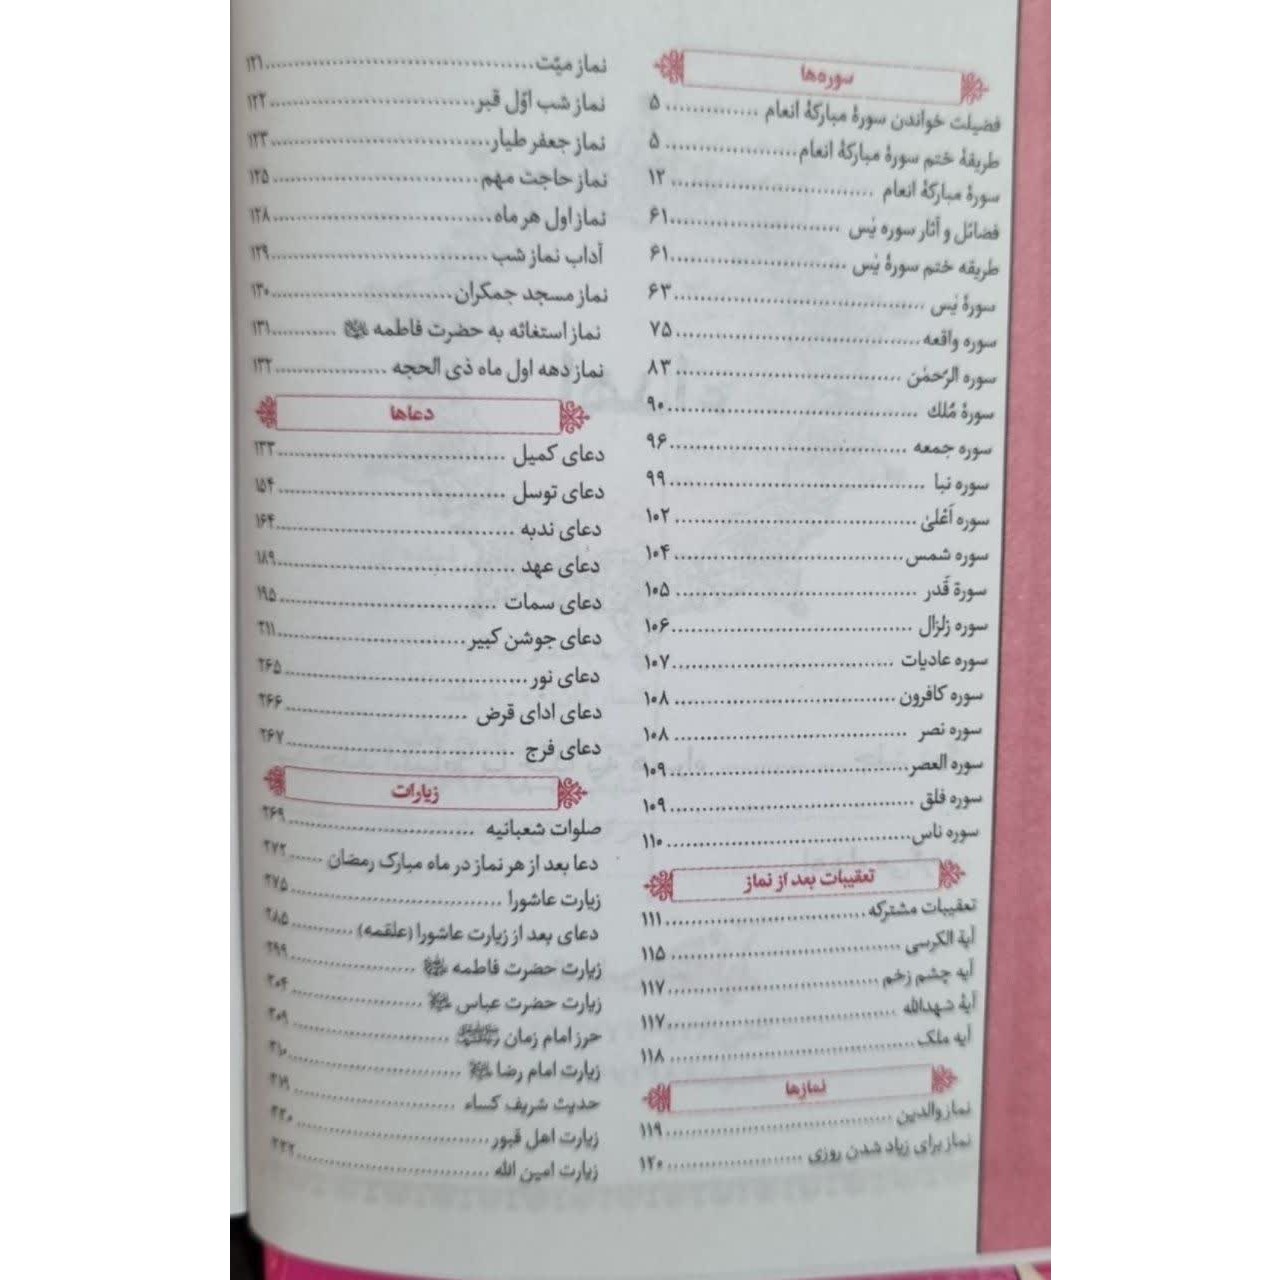 سوره‌ها
فضیلت خواندن سورهٔ مبارکهٔ انعام .............. ۵
طریقهٔ ختم سورهٔ مبارکهٔ انعام .................... ۵
سورهٔ مبارکهٔ انعام ............................... ۱۲
فضائل و آثار سوره یٰس .......................... ۶۱
طریقه ختم سورهٔ یٰس ........................... ۶۱
سورهٔ یٰس ....................................... ۶۳
سوره واقعه ...................................... ۷۵
سوره الرّحمٰن ................................... ۸۳
سورهٔ مُلك ...................................... ۹۰
سوره جمعه ..................................... ۹۶
سوره نبا ........................................ ۹۹
سوره اَعْلیٰ ...................................... ۱۰۲
سوره شمس .................................... ۱۰۴
سورة قَدر ...................................... ۱۰۵
سوره زلزال ..................................... ۱۰۶
سوره عادیات ................................... ۱۰۷
سوره کافرون ................................... ۱۰۸
سوره نصر ...................................... ۱۰۸
سوره العصر ..................................... ۱۰۹
سوره فلق ....................................... ۱۰۹
سوره ناس ....................................... ۱۱۰
تعقیبات بعد از نماز
تعقیبات مشترکه ................................ ۱۱۱
آیة الکرسی ..................................... ۱۱۵
آیه چشم زخم .................................. ۱۱۷
آیهٔ شهدالله .................................... ۱۱۷
آیه ملک ........................................ ۱۱۸
نمازها
نماز والدین ..................................... ۱۱۹
نماز برای زیاد شدن روزی ...................... ۱۲۰
نماز میّت ........................................ ۱۲۱
نماز شب اوّل قبر ................................ ۱۲۲
نماز جعفر طیار .................................. ۱۲۳
نماز حاجت مهم ................................. ۱۲۵
نماز اول هر ماه .................................. ۱۲۸
آداب نماز شب ................................... ۱۲۹
نماز مسجد جمکران ............................. ۱۳۰
نماز استغاثه به حضرت فاطمه ........... ۱۳۱
نماز دهه اول ماه ذی الحجه .................. ۱۳۲
دعاها
دعای کمیل ..................................... ۱۳۳
دعای توسل ..................................... ۱۵۴
دعای ندبه ...................................... ۱۶۴
دعای عهد ....................................... ۱۸۹
دعای سمات .................................... ۱۹۵
دعای جوشن کبیر .............................. ۲۱۱
دعای نور ........................................ ۲۶۵
دعای ادای قرض ............................... ۲۶۶
دعای فرج ....................................... ۲۶۷
زیارات
صلوات شعبانیه ................................ ۲۶۹
دعا بعد از هر نماز در ماه مبارک رمضان ...... ۲۷۲
زیارت عاشورا ................................... ۲۷۵
دعای بعد از زیارت عاشورا (علقمه) ........... ۲۸۵
زیارت حضرت فاطمه .................... ۲۹۹
زیارت حضرت عباس ..................... ۳۰۴
حرز امام زمان ........................... ۳۰۹
زیارت امام رضا ........................... ۳۱۰
حدیث شریف کساء ............................. ۳۱۹
زیارت اهل قبور .................................
زیارت امین الله .................................